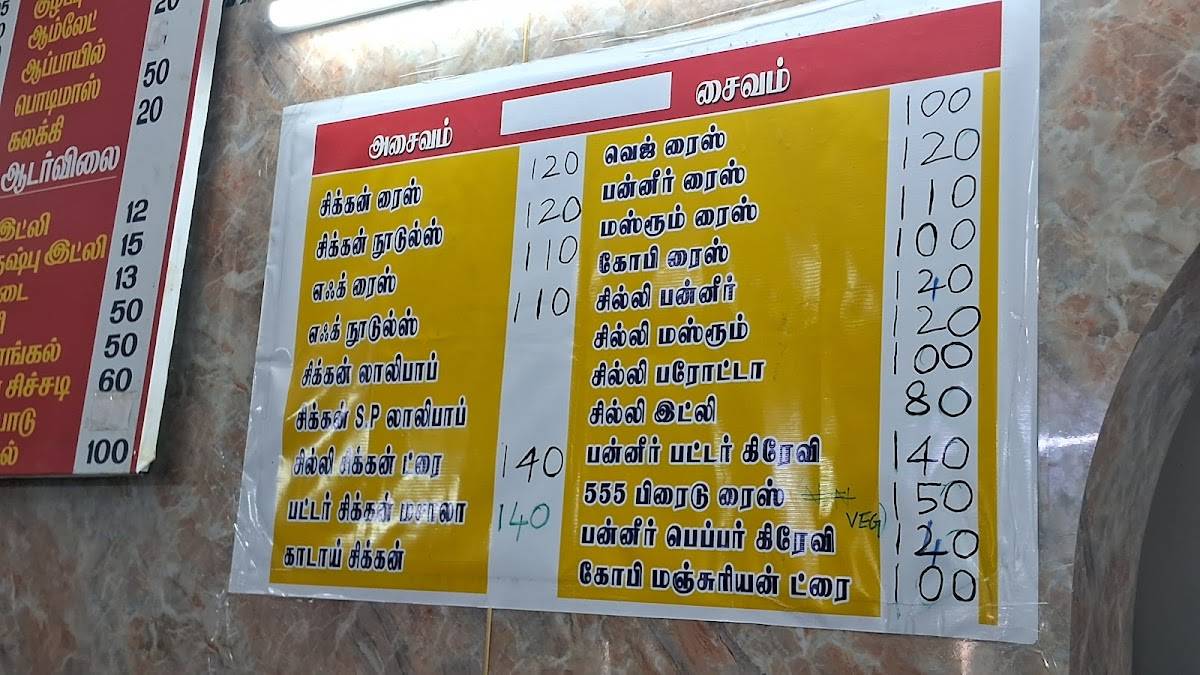 20
ஆம்லேட்
ஆப்பாயில் 50
பொடிமாஸ் 20
கலக்கி
ஆடர்விலை
இட்லி 12
இட்லி 15
13
50
50
சிச்சடி 60
100
அசைவம்
சிக்கன் ரைஸ் 120
சிக்கன் நூடுல்ஸ் 120
எஃக் ரைஸ் 110
எஃக் நூடுல்ஸ் 110
சிக்கன் லாலிபாப்
சிக்கன் S.P லாலிபாப்
சில்லி சிக்கன் ட்ரை 140
பட்டர் சிக்கன் மசாலா 140
காடாய் சிக்கன்
சைவம்
வெஜ் ரைஸ் 100
பன்னீர் ரைஸ் 120
மஸ்ரூம் ரைஸ் 110
கோபி ரைஸ் 100
சில்லி பன்னீர் 140
சில்லி மஸ்ரூம் 120
சில்லி பரோட்டா 100
சில்லி இட்லி 80
பன்னீர் பட்டர் கிரேவி 140
555 பிரைடு ரைஸ் VEG) 150
பன்னீர் பெப்பர் கிரேவி 140
கோபி மஞ்சுரியன் ட்ரை 100